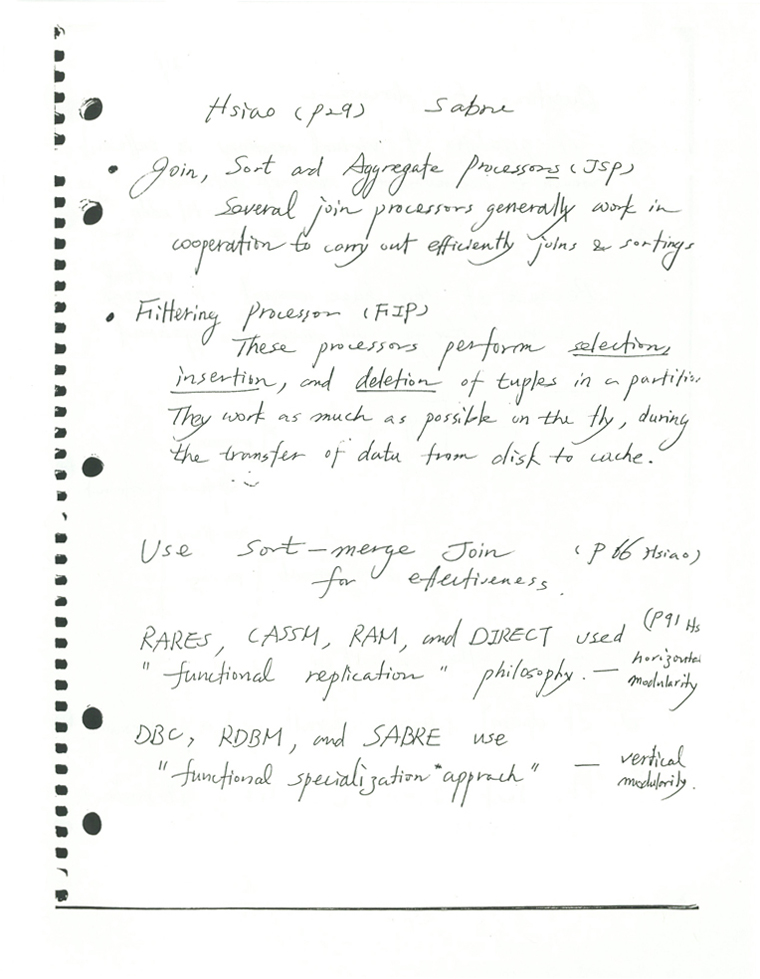 Hsiao (P29) Sabre
• Join, Sort ad Aggregate Processors (JSP)
Several join processors generally work in
cooperation to carry out efficiently joins & sortings
• Filtering Processor (FIP)
These processors perform selection,
insertion, and deletion of tuples in a partition
They work as much as possible on the fly, during
the transfer of data from disk to cache.
Use Sort-merge Join (P 66 Hsiao)
for effectiveness.
RARES, CASSM, RAM, and DIRECT used (P91 Hs
"functional replication" philosophy. — horizontal
modularity
DBC, RDBM, and SABRE use
"functional specialization" approach" — vertical
modularity.